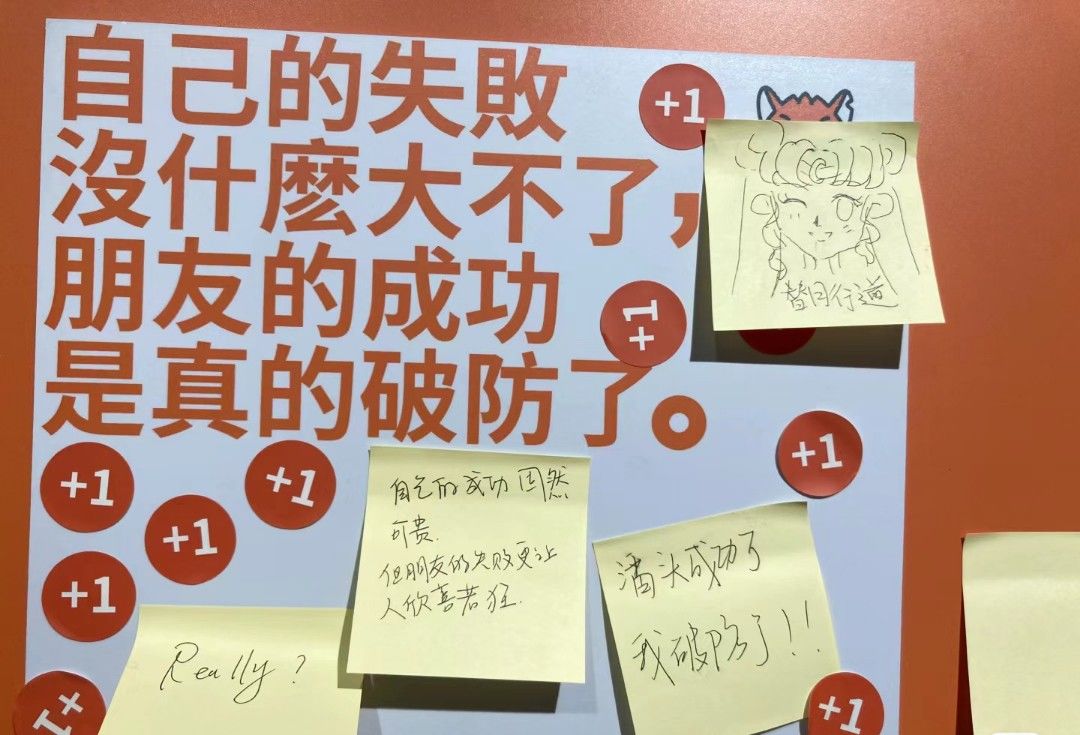 自己的失敗
沒什麽大不了，
朋友的成功
是真的破防了。
+1
+1
+1
+1
+1
+1
+1
+1
+1
替月行道
自己的成功固然
可贵.
但朋友的失败更让
人欣喜若狂.
潘头成功了
我破防了!!
Really?